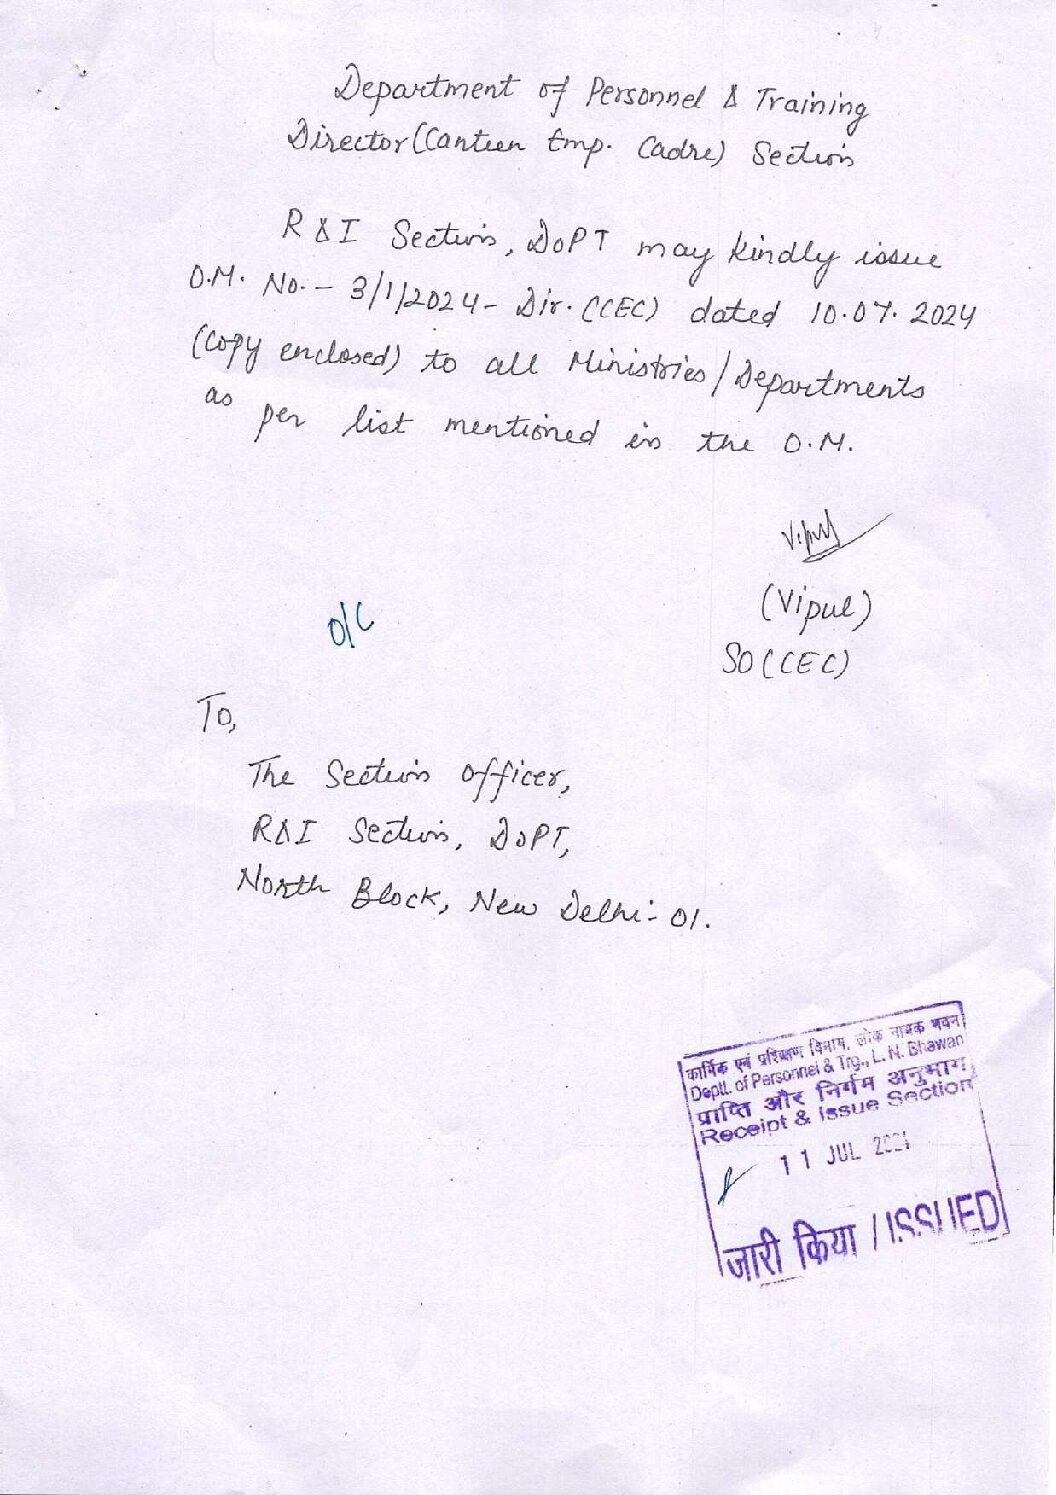 Department of Personnel & Training
Director (Canteen Emp. Cadre) Section
R&I Section, DoPT may kindly issue
O.M. No.- 3/1/2024- Dir.(CEC) dated 10.07.2024
(copy enclosed) to all Ministries/Departments
as per list mentioned in the O.M.
Vipul
(Vipul)
SO (CEC)
O/C
To,
The Section Officer,
R&I Section, DoPT,
North Block, New Delhi-01.
कार्मिक एवं प्रशिक्षण विभाग, लोक नायक भवन
Deptt. of Personnel & Trg., L. N. Bhawan
प्राप्ति और निर्गम अनुभाग
Receipt & Issue Section
11 JUL
जारी किया / ISSUED